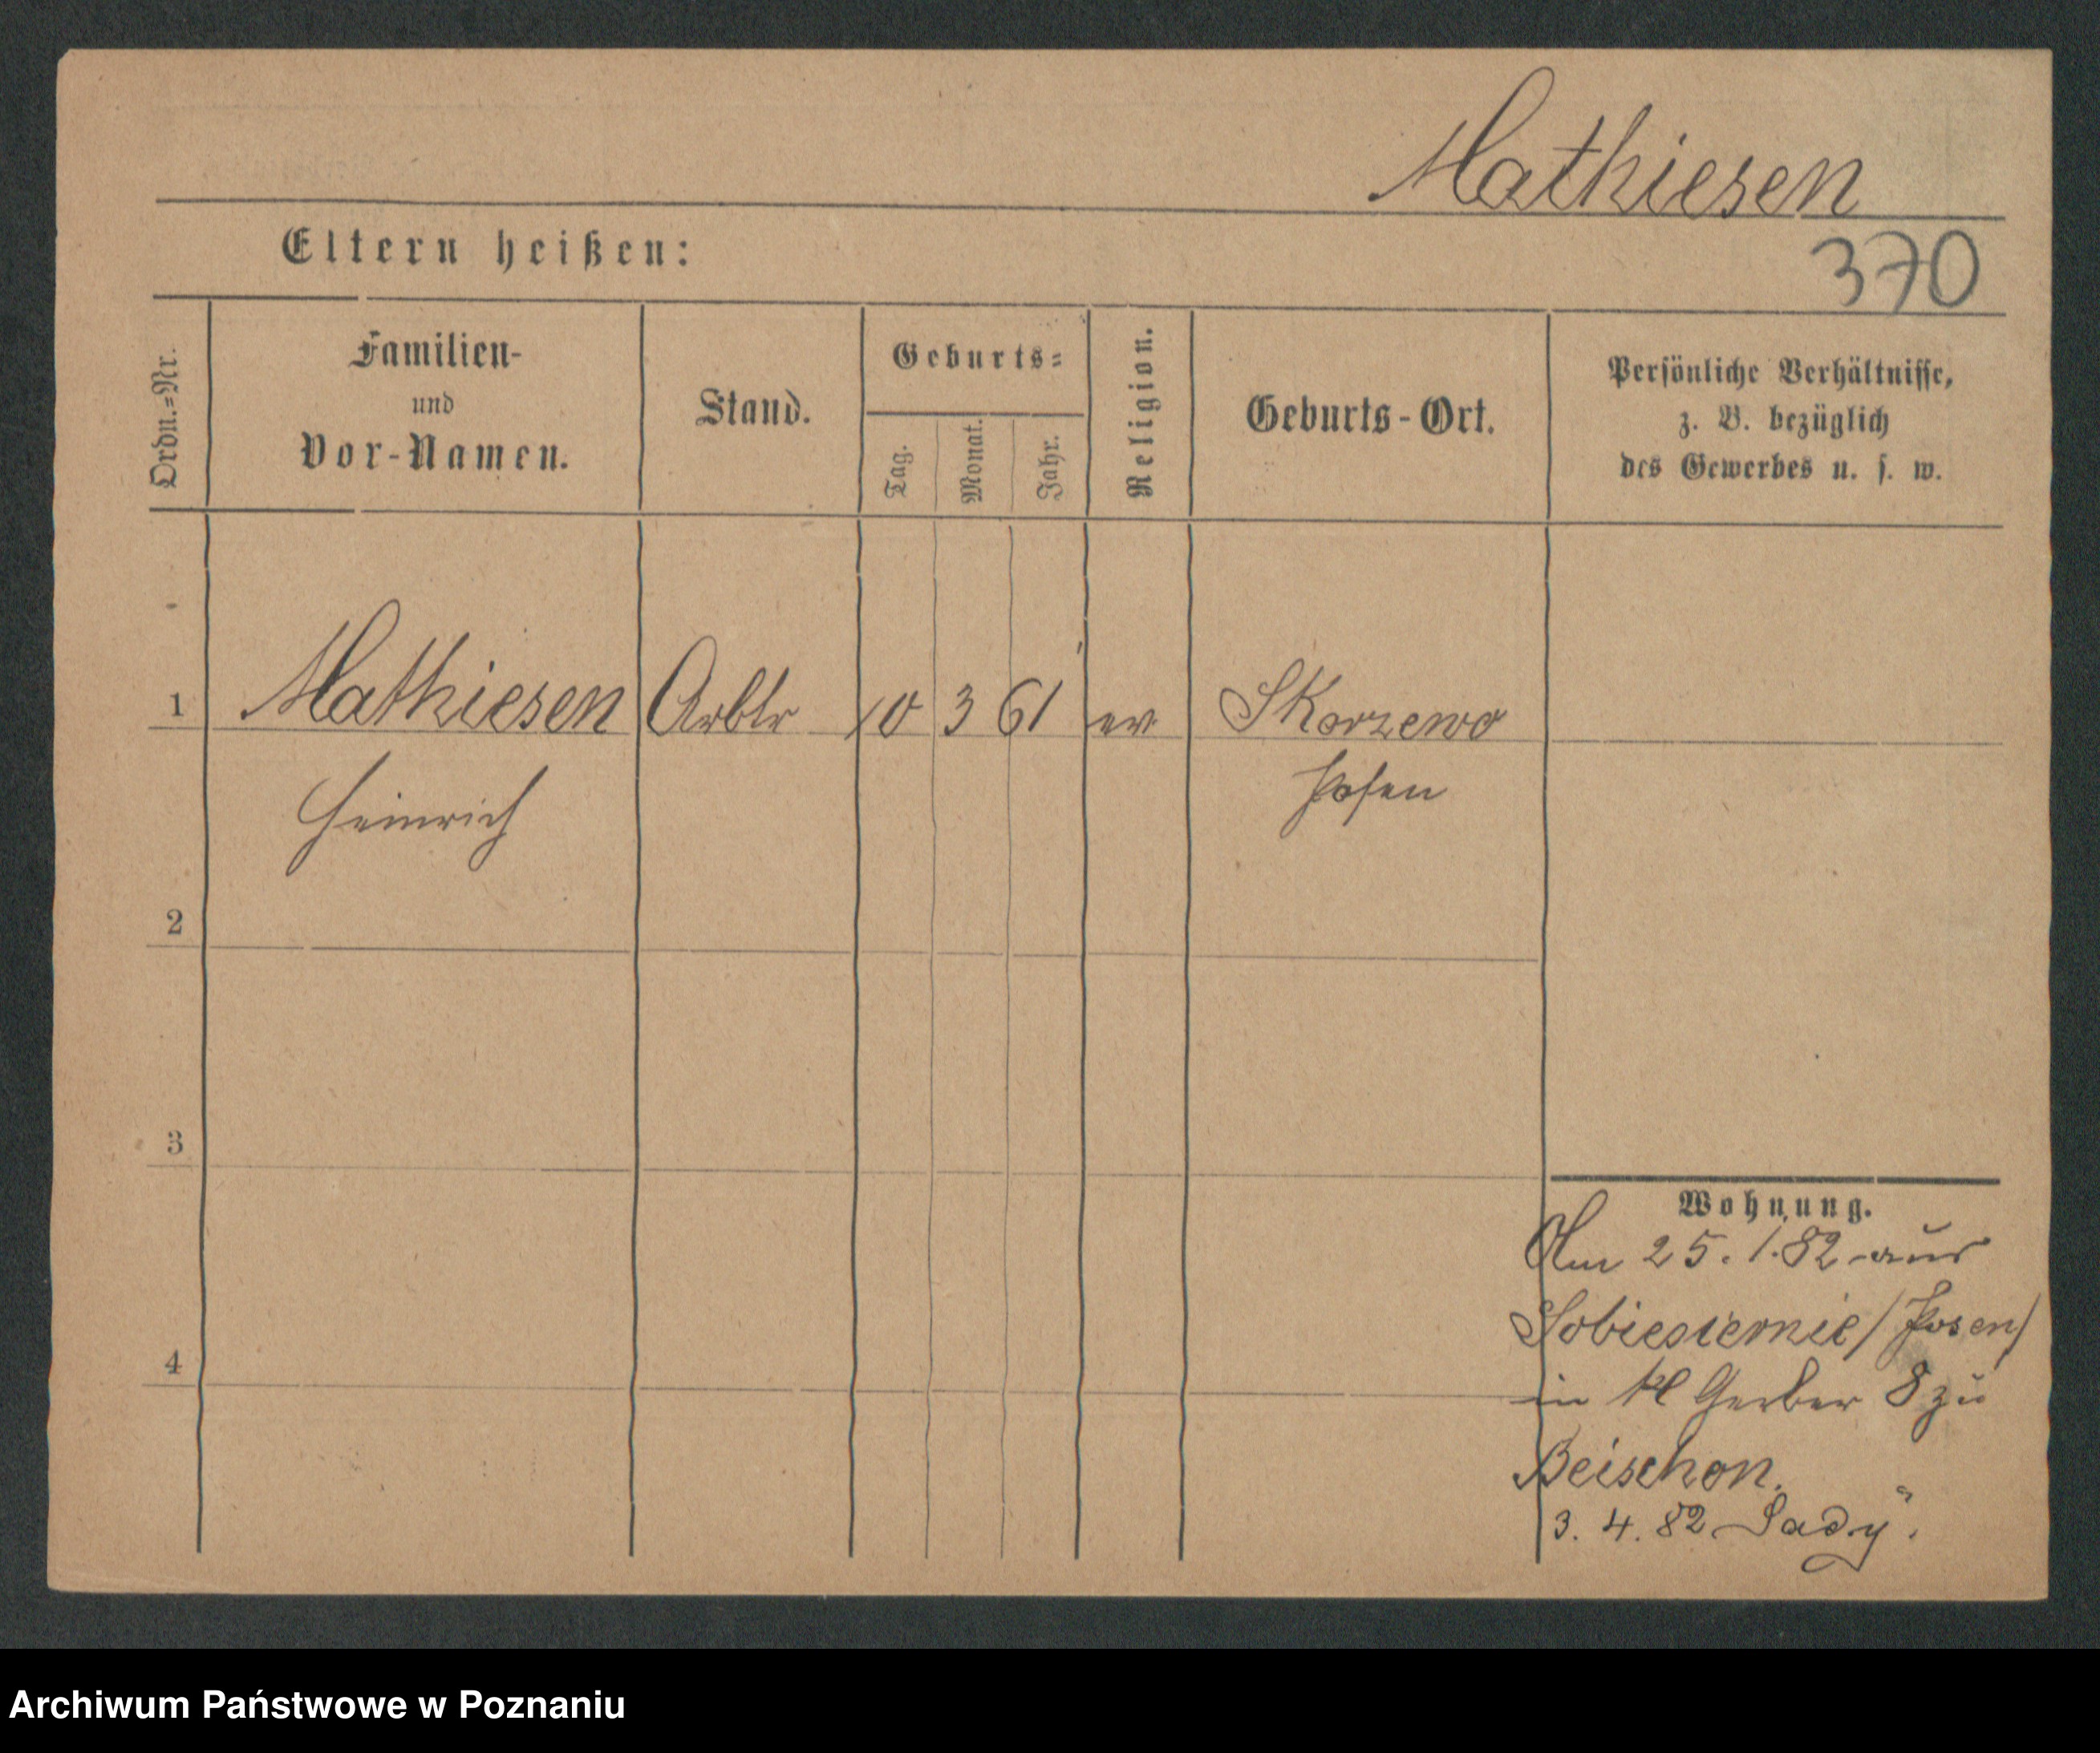 Mathiesen
Eltern heißen:
370
Ordn.=Nr.
Familien-
und
Vor-Namen.
Stand.
Geburts=
Tag.
Monat.
Jahr.
Religion.
Geburts-Ort.
Persönliche Verhältnisse,
z. B. bezüglich
des Gewerbes u. s. w.
1 Mathiesen Arbtr 10 3 61 ev Skorzewo
Heinrich Posen
2
3
4
Wohnung.
Am 25. 1. 82 aus
/Posen/
in kl Gerber 8 zu
Beischon.
3. 4. 82 Sady".
Archiwum Państwowe w Poznaniu